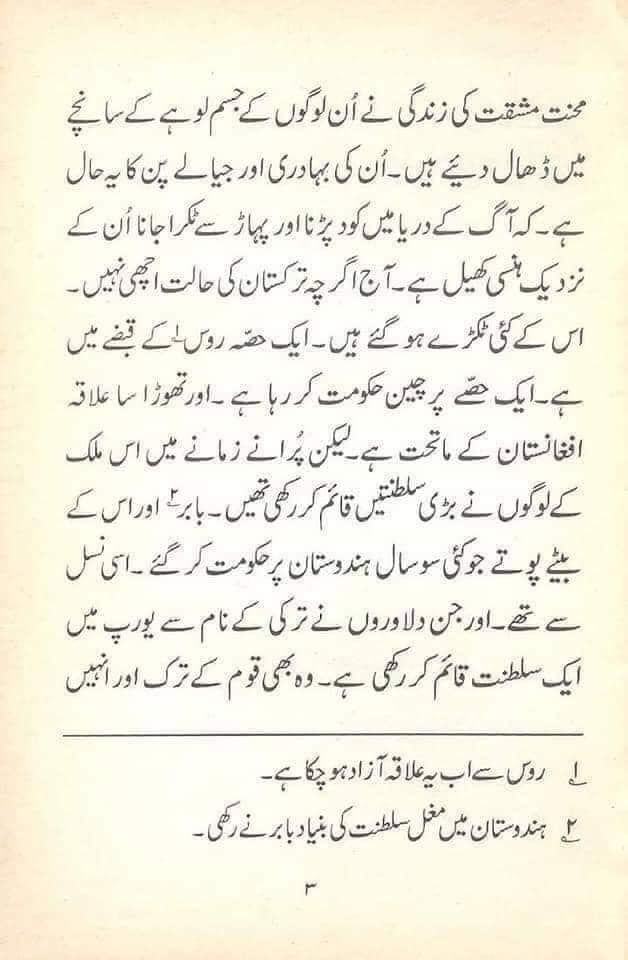 محنت مشقت کی زندگی نے اُن لوگوں کے جسم لوہے کے سانچے
میں ڈھال دیئے ہیں۔ اُن کی بہادری اور جیالے پن کا یہ حال
ہے۔ کہ آگ کے دریا میں کود پڑنا اور پہاڑ سے ٹکرا جانا اُن کے
نزدیک ہنسی کھیل ہے۔ آج اگرچہ ترکستان کی حالت اچھی نہیں۔
اس کے کئی ٹکڑے ہو گئے ہیں۔ ایک حصّہ روس ۱؎ کے قبضے میں
ہے۔ ایک حصّے پر چین حکومت کر رہا ہے ۔ اور تھوڑا سا علاقہ
افغانستان کے ماتحت ہے۔ لیکن پُرانے زمانے میں اس ملک
کے لوگوں نے بڑی سلطنتیں قائم کر رکھی تھیں۔ بابر ۲؎ اور اس کے
بیٹے پوتے جو کئی سو سال ہندوستان پر حکومت کر گئے ۔ اسی نسل
سے تھے۔ اور جن دلاوروں نے ترکی کے نام سے یورپ میں
ایک سلطنت قائم کر رکھی ہے۔ وہ بھی قوم کے ترک اور انہیں
۱؎ روس سے اب یہ علاقہ آزاد ہو چکا ہے۔
۲؎ ہندوستان میں مغل سلطنت کی بنیاد بابر نے رکھی۔
۳